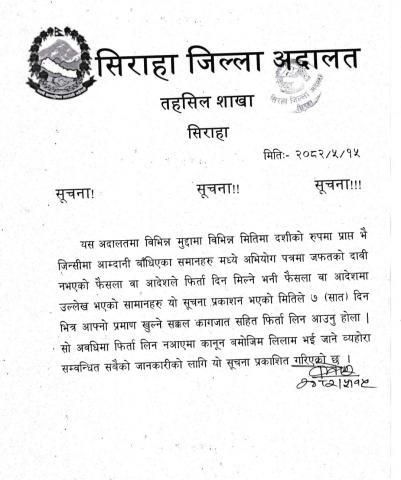 सिराहा जिल्ला अदालत
तहसिल शाखा
सिराहा
मितिः- २०८२/५/१५
सूचना! सूचना!! सूचना!!!
यस अदालतमा बिभिन्न मुद्दामा बिभिन्न मितिमा दशीको रुपमा प्राप्त भै
जिन्सीमा आम्दानी बाँधिएका समानहरु मध्ये अभियोग पत्रमा जफतको दावी
नभएको फैसला वा आदेशले फिर्ता दिन मिल्ने भनी फैसला वा आदेशमा
उल्लेख भएको सामानहरु यो सूचना प्रकाशन भएको मितिले ७ (सात) दिन
भित्र आफ्नो प्रमाण खुल्ने सक्कल कागजात सहित फिर्ता लिन आउनु होला |
सो अवधिमा फिर्ता लिन नआएमा कानून बमोजिम लिलाम भई जाने व्यहोरा
सम्बन्धित सबैको जानकारीको लागि यो सूचना प्रकाशित गरिएको छ |